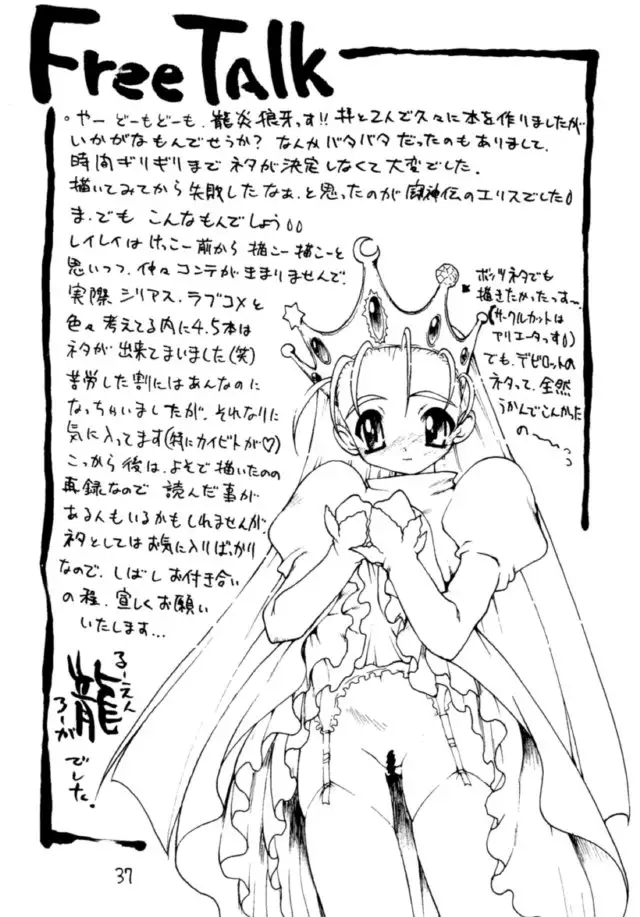 Free Talk
。やー どーもどーも、龍炎狼牙っす!! 井上と2人で久々に本を作りましたが
いかがなもんでせうか? なんかバタバタだったのもありまして、
時間ギリギリまで ネタが決定しなくて大変でした。
描いてみてから失敗したなぁ、と思ったのが 魔神伝のエリスでした
ま、でも こんなもんでしょう
レイレイは けっこー前から 描こー描こーと
思いつつ、仲々コンテがきまりませんで、
実際 シリアス、ラブコメと
色々考えてる内に 4.5本は
ネタが出来てまいました(笑)
苦労した割にはあんなのに
なっちゃいましたが、それなりに
気に入ってます(特にカイビトが♡)
こっから後は、よそで描いたのの
再録なので 読んだ事が
ある人もいるかもしれませんが、
ネタとしてはお気に入りばっかり
なので、しばしお付き合い
の程、宜しくお願い
いたします…
るーえん
龍
ろーが
でした。
ボッツネタでも
描きたかったっすー、
(サークルカットは
でリエータっす)
でも、デビロットの
ネタって、全然
うかんでこんかった
の〜〜っっ
37